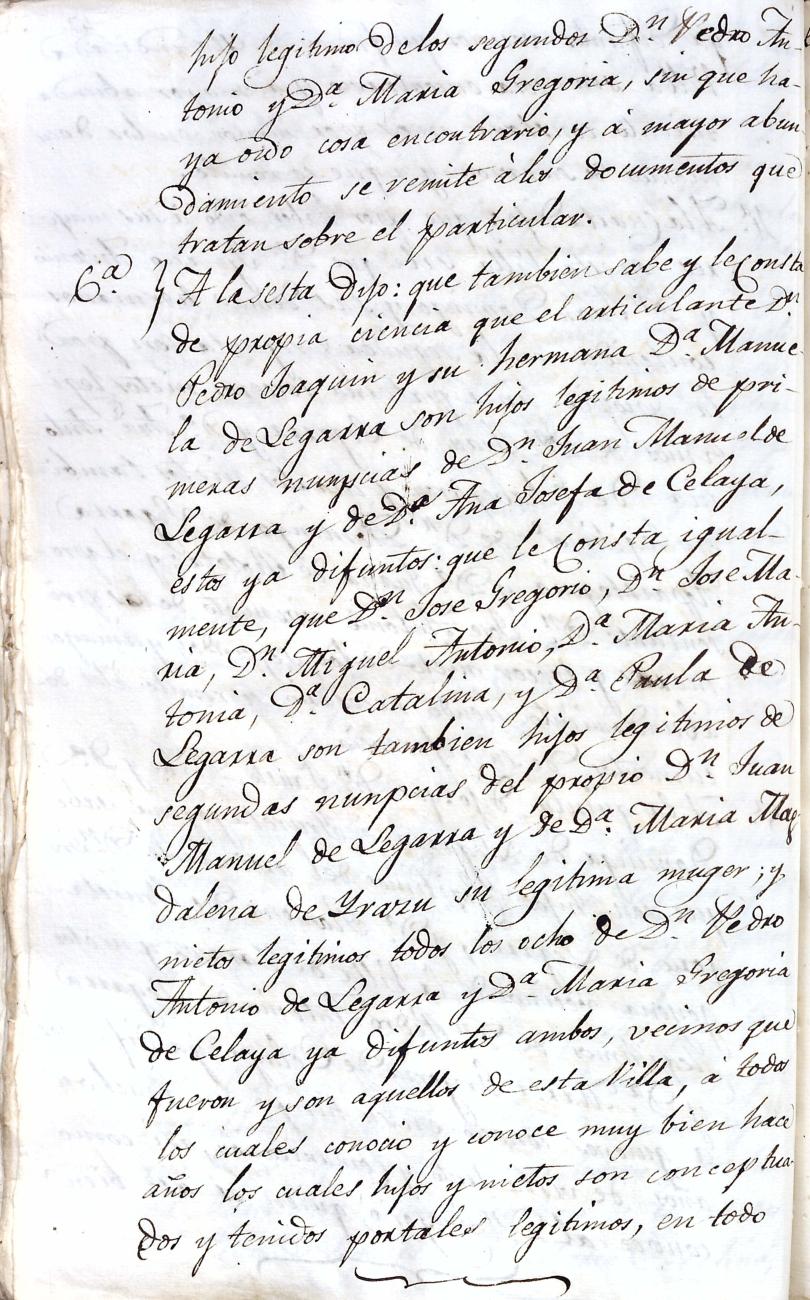 hijo legitimo delos segundos Dn. Pedro An-
tonio y Da. Maria Gregoria, sin que ha-
ya oido cosa encontrario, y á mayor abun
damiento se remite álos documentos que
tratan sobre el particular.
6a. } A la sesta dijo: que tambien sabe y le Consta
de propia ciencia que el articulante Dn.
Pedro Joaquin y su hermana Da. Manue-
la de Legarra son hijos legitimos de pri-
meras nunpcias de Dn. Juan Manuel de
Legarra y de Da. Ana Josefa de Celaya,
estos ya difuntos: que le Consta igual-
mente, que Dn. Jose Gregorio, Dn. Jose Ma-
ria, Dn. Miguel Antonio, Da. Maria An-
tonia, Da. Catalina, y Da. Paula de
Legarra son tambien hijos legitimos de
segundas nunpcias del propio Dn. Juan
Manuel de Legarra y de Da. Maria Mag
dalena de Yrazu su legitima muger; y
nietos legitimos todos los ocho de Dn. Pedro
Antonio de Legarra y Da. Maria Gregoria
de Celaya ya difuntos ambos, vecinos que
fueron y son aquellos de esta Villa, á todos
los cuales conocio y conoce muy bien hace
años los cuales hijos y nietos son conceptua-
dos y tenidos portales legitimos, en todo